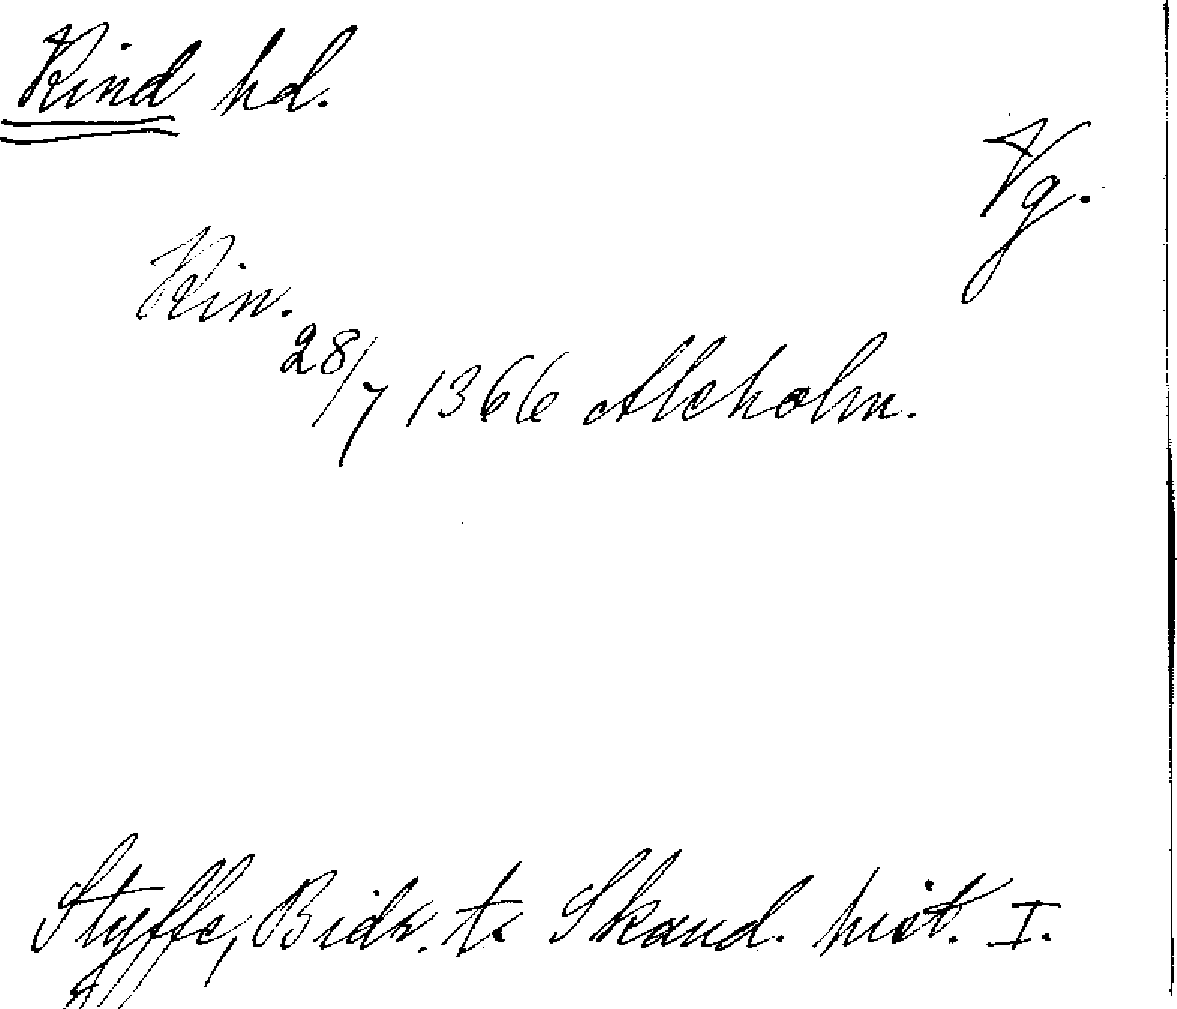 Kind hd.
Vg.
Kin.
28/7 1366 Alcholm.
Styffe, Bidr. t. Skand. hist. I.